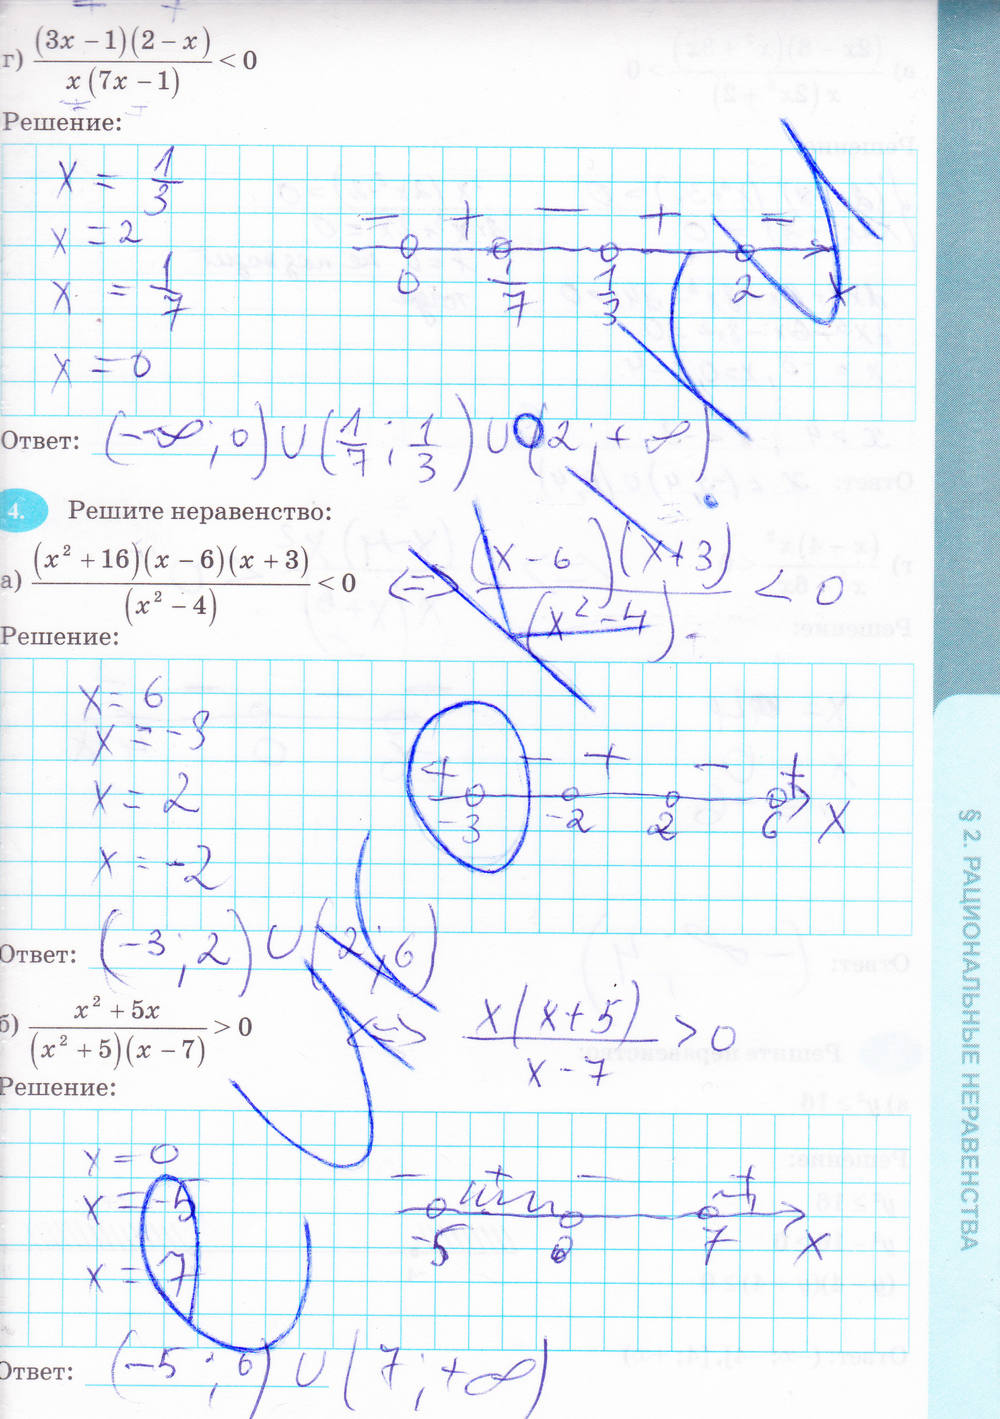 г) (3x − 1)(2 − x) / x(7x − 1) < 0
Решение:
x = 1/3
x = 2
x = 1/7
x = 0
− + − + −
0 1/7 1/3 2 x
Ответ: (−∞; 0) ∪ (1/7; 1/3) ∪ (2; +∞)
4. Решите неравенство:
а) (x² + 16)(x − 6)(x + 3) / (x² − 4) < 0 <=> (x − 6)(x + 3) / (x² − 4) < 0
Решение:
x = 6
x = −3
x = 2
x = −2
+ − + − +
−3 −2 2 6 x
Ответ: (−3; 2) ∪ (2; 6)
б) x² + 5x / (x² + 5)(x − 7) > 0 <=> x(x + 5) / x − 7 > 0
Решение:
x = 0
x = −5
x = 7
− + − +
−5 0 7 x
Ответ: (−5; 0) ∪ (7; +∞)
§ 2. РАЦИОНАЛЬНЫЕ НЕРАВЕНСТВА